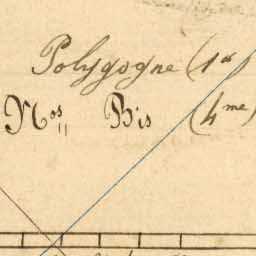 Polygogne (1er)
Nos,, Bis (4me)